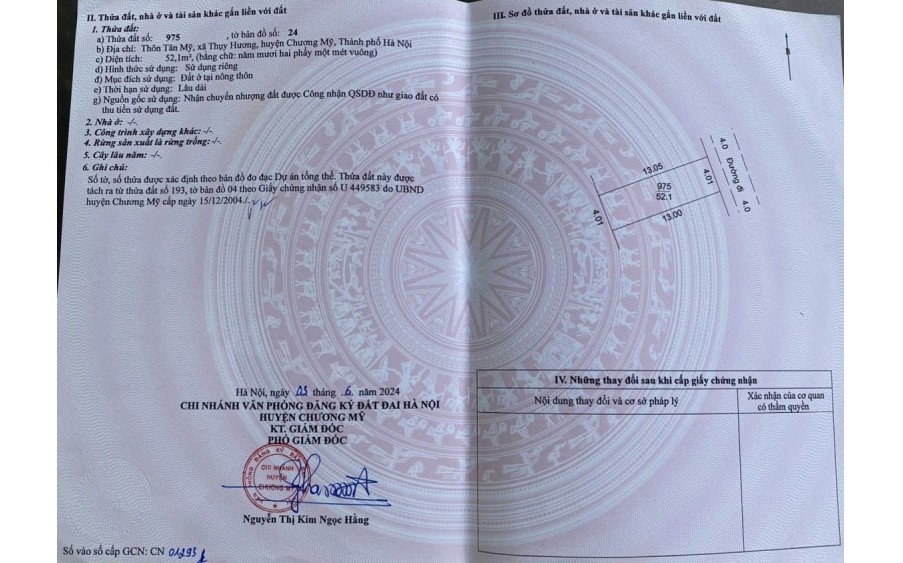 II. Thửa đất, nhà ở và tài sản khác gắn liền với đất
1. Thửa đất:
a) Thửa đất số: 975 , tờ bản đồ số: 24
b) Địa chỉ: Thôn Tân Mỹ, xã Thụy Hương, huyện Chương Mỹ, Thành phố Hà Nội
c) Diện tích: 52,1m², (bằng chữ: năm mươi hai phẩy một mét vuông)
d) Hình thức sử dụng: Sử dụng riêng
đ) Mục đích sử dụng: Đất ở tại nông thôn
e) Thời hạn sử dụng: Lâu dài
g) Nguồn gốc sử dụng: Nhận chuyển nhượng đất được Công nhận QSDĐ như giao đất có
thu tiền sử dụng đất.
2. Nhà ở: -/-.
3. Công trình xây dựng khác: -/-.
4. Rừng sản xuất là rừng trồng:-/-.
5. Cây lâu năm: -/-.
6. Ghi chú:
Số tờ, số thửa được xác định theo bản đồ đo đạc Dự án tổng thể. Thửa đất này được
tách ra từ thửa đất số 193, tờ bản đồ 04 theo Giấy chứng nhận số U 449583 do UBND
huyện Chương Mỹ cấp ngày 15/12/2004./.
Hà Nội, ngày 03 tháng 6. năm 2024
CHI NHÁNH VĂN PHÒNG ĐĂNG KÝ ĐẤT ĐAI HÀ NỘI
HUYỆN CHƯƠNG MỸ
KT. GIÁM ĐỐC
PHÓ GIÁM ĐỐC
CHI NHÁNH
HUYỆN
CHƯƠNG MỸ
Nguyễn Thị Kim Ngọc Hằng
Số vào sổ cấp GCN: CN 01293
III. Sơ đồ thửa đất, nhà ở và tài sản khác gắn liền với đất
B
13.05
4.01
975
52.1
4.01
13.00
4.0
Đường đi
4.0
IV. Những thay đổi sau khi cấp giấy chứng nhận
Nội dung thay đổi và cơ sở pháp lý
Xác nhận của cơ quan
có thẩm quyền